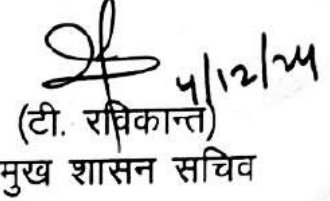 4/12/24
(टी. रविकान्त)
मुख शासन सचिव